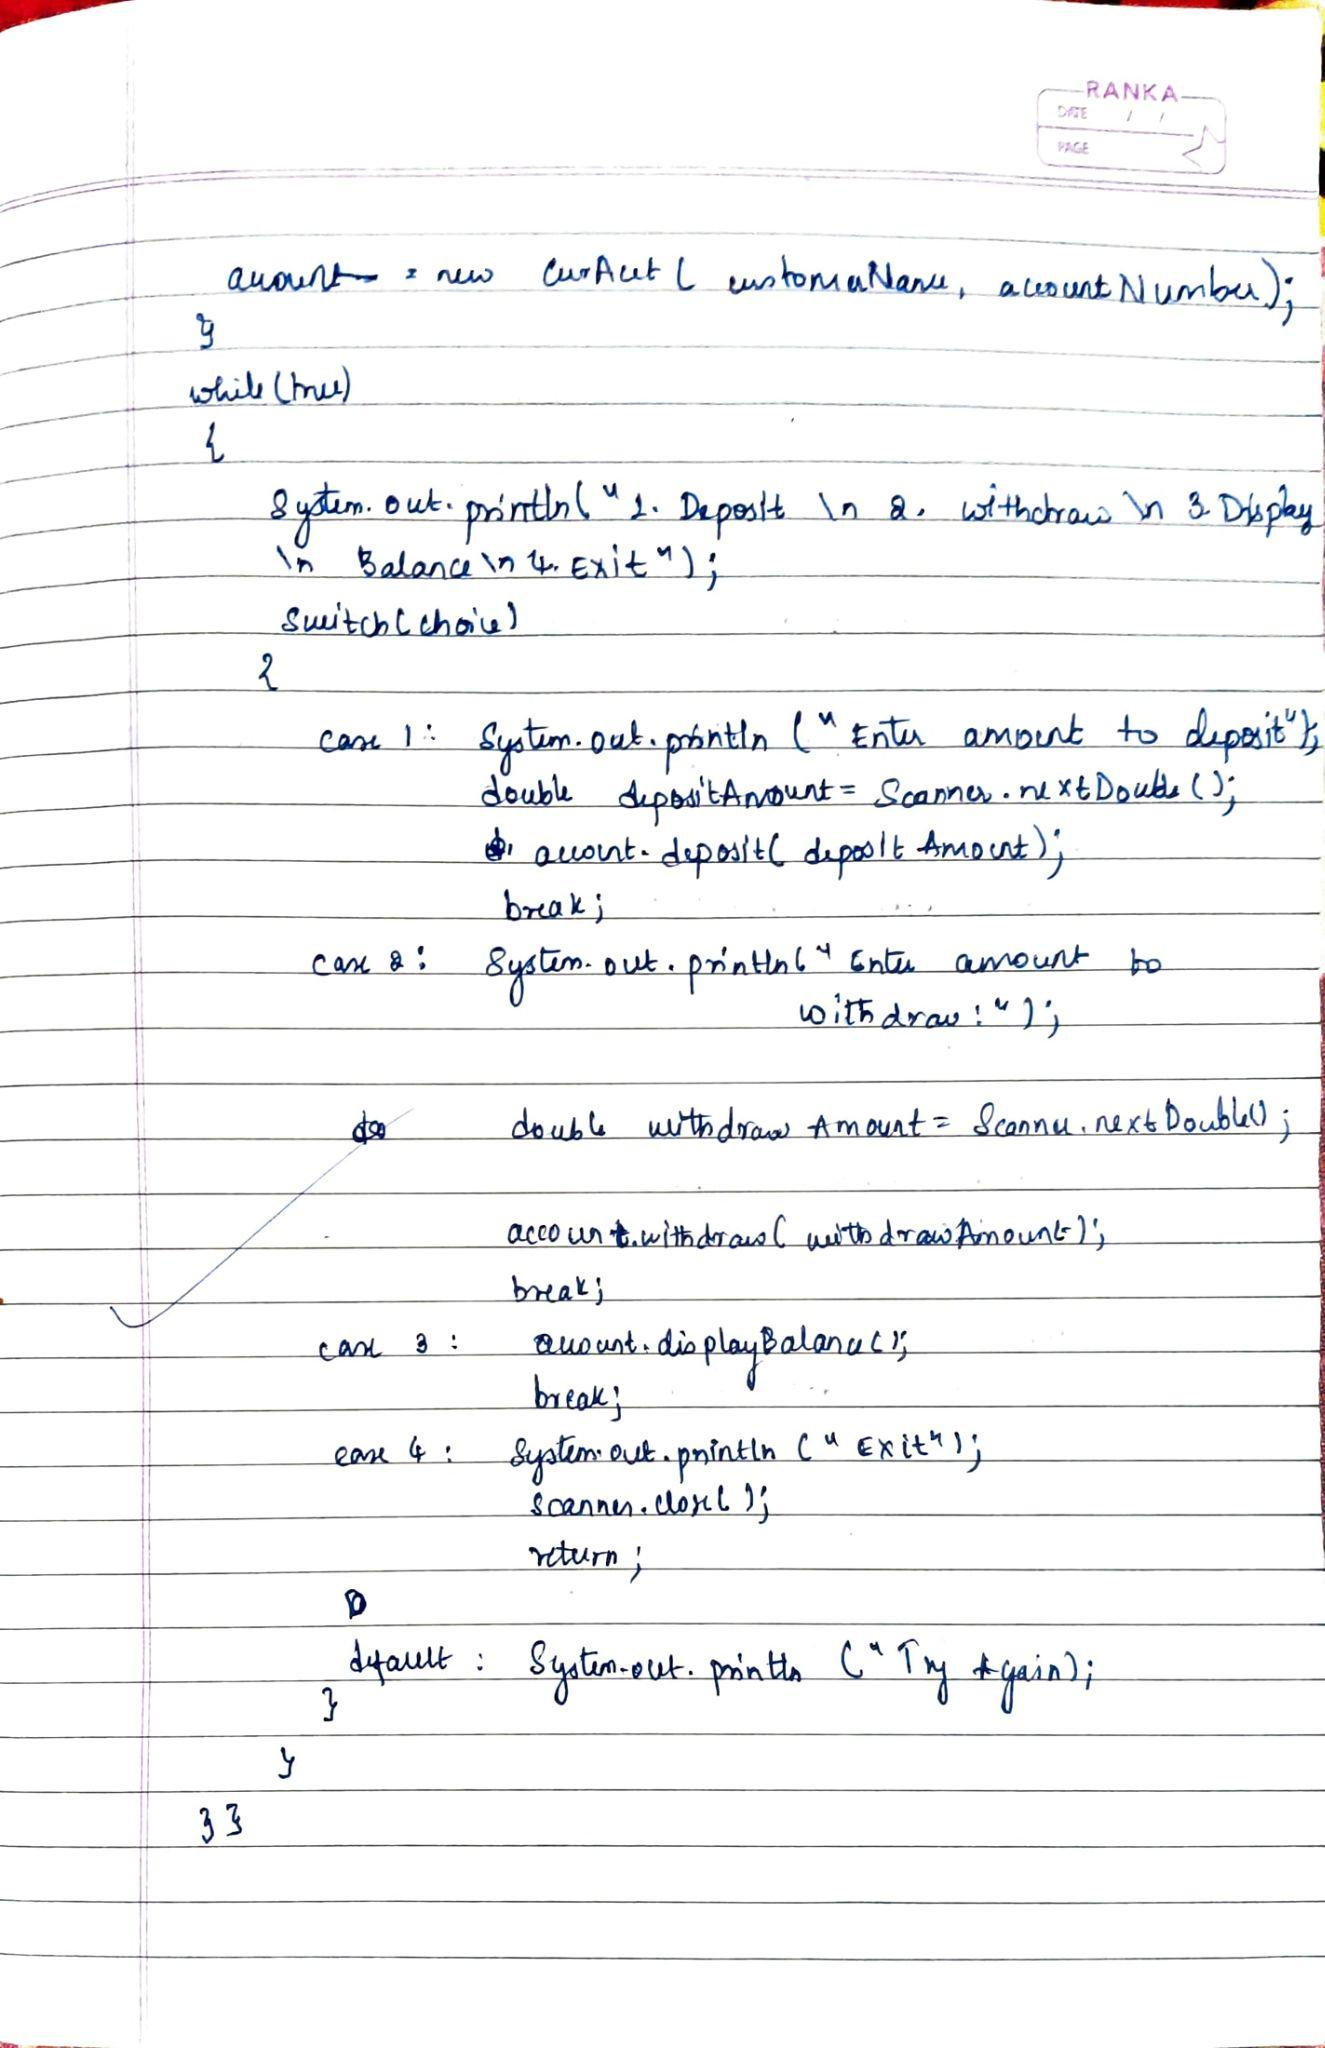 RANKA
DATE / /
PAGE
account = new CurAcct ( customerName, accountNumber);
}
while (true)
{
System.out.println("1. Deposit \n 2. withdraw \n 3 Display
\n Balance \n 4. Exit");
switch(choice)
{
case 1: System.out.println ("Enter amount to deposit");
double depositAmount = Scanner.nextDouble ();
account.deposit( deposit Amount);
break;
case 2: System.out.println("Enter amount to
withdraw:");
double withdraw Amount = Scanner.nextDouble();
account.withdraw( withdrawAmount);
break;
case 3: account.displayBalance();
break;
case 4: System.out.println ("Exit");
scanner.close( );
return;
default: System.out.println ("Try Again);
}
}
}}